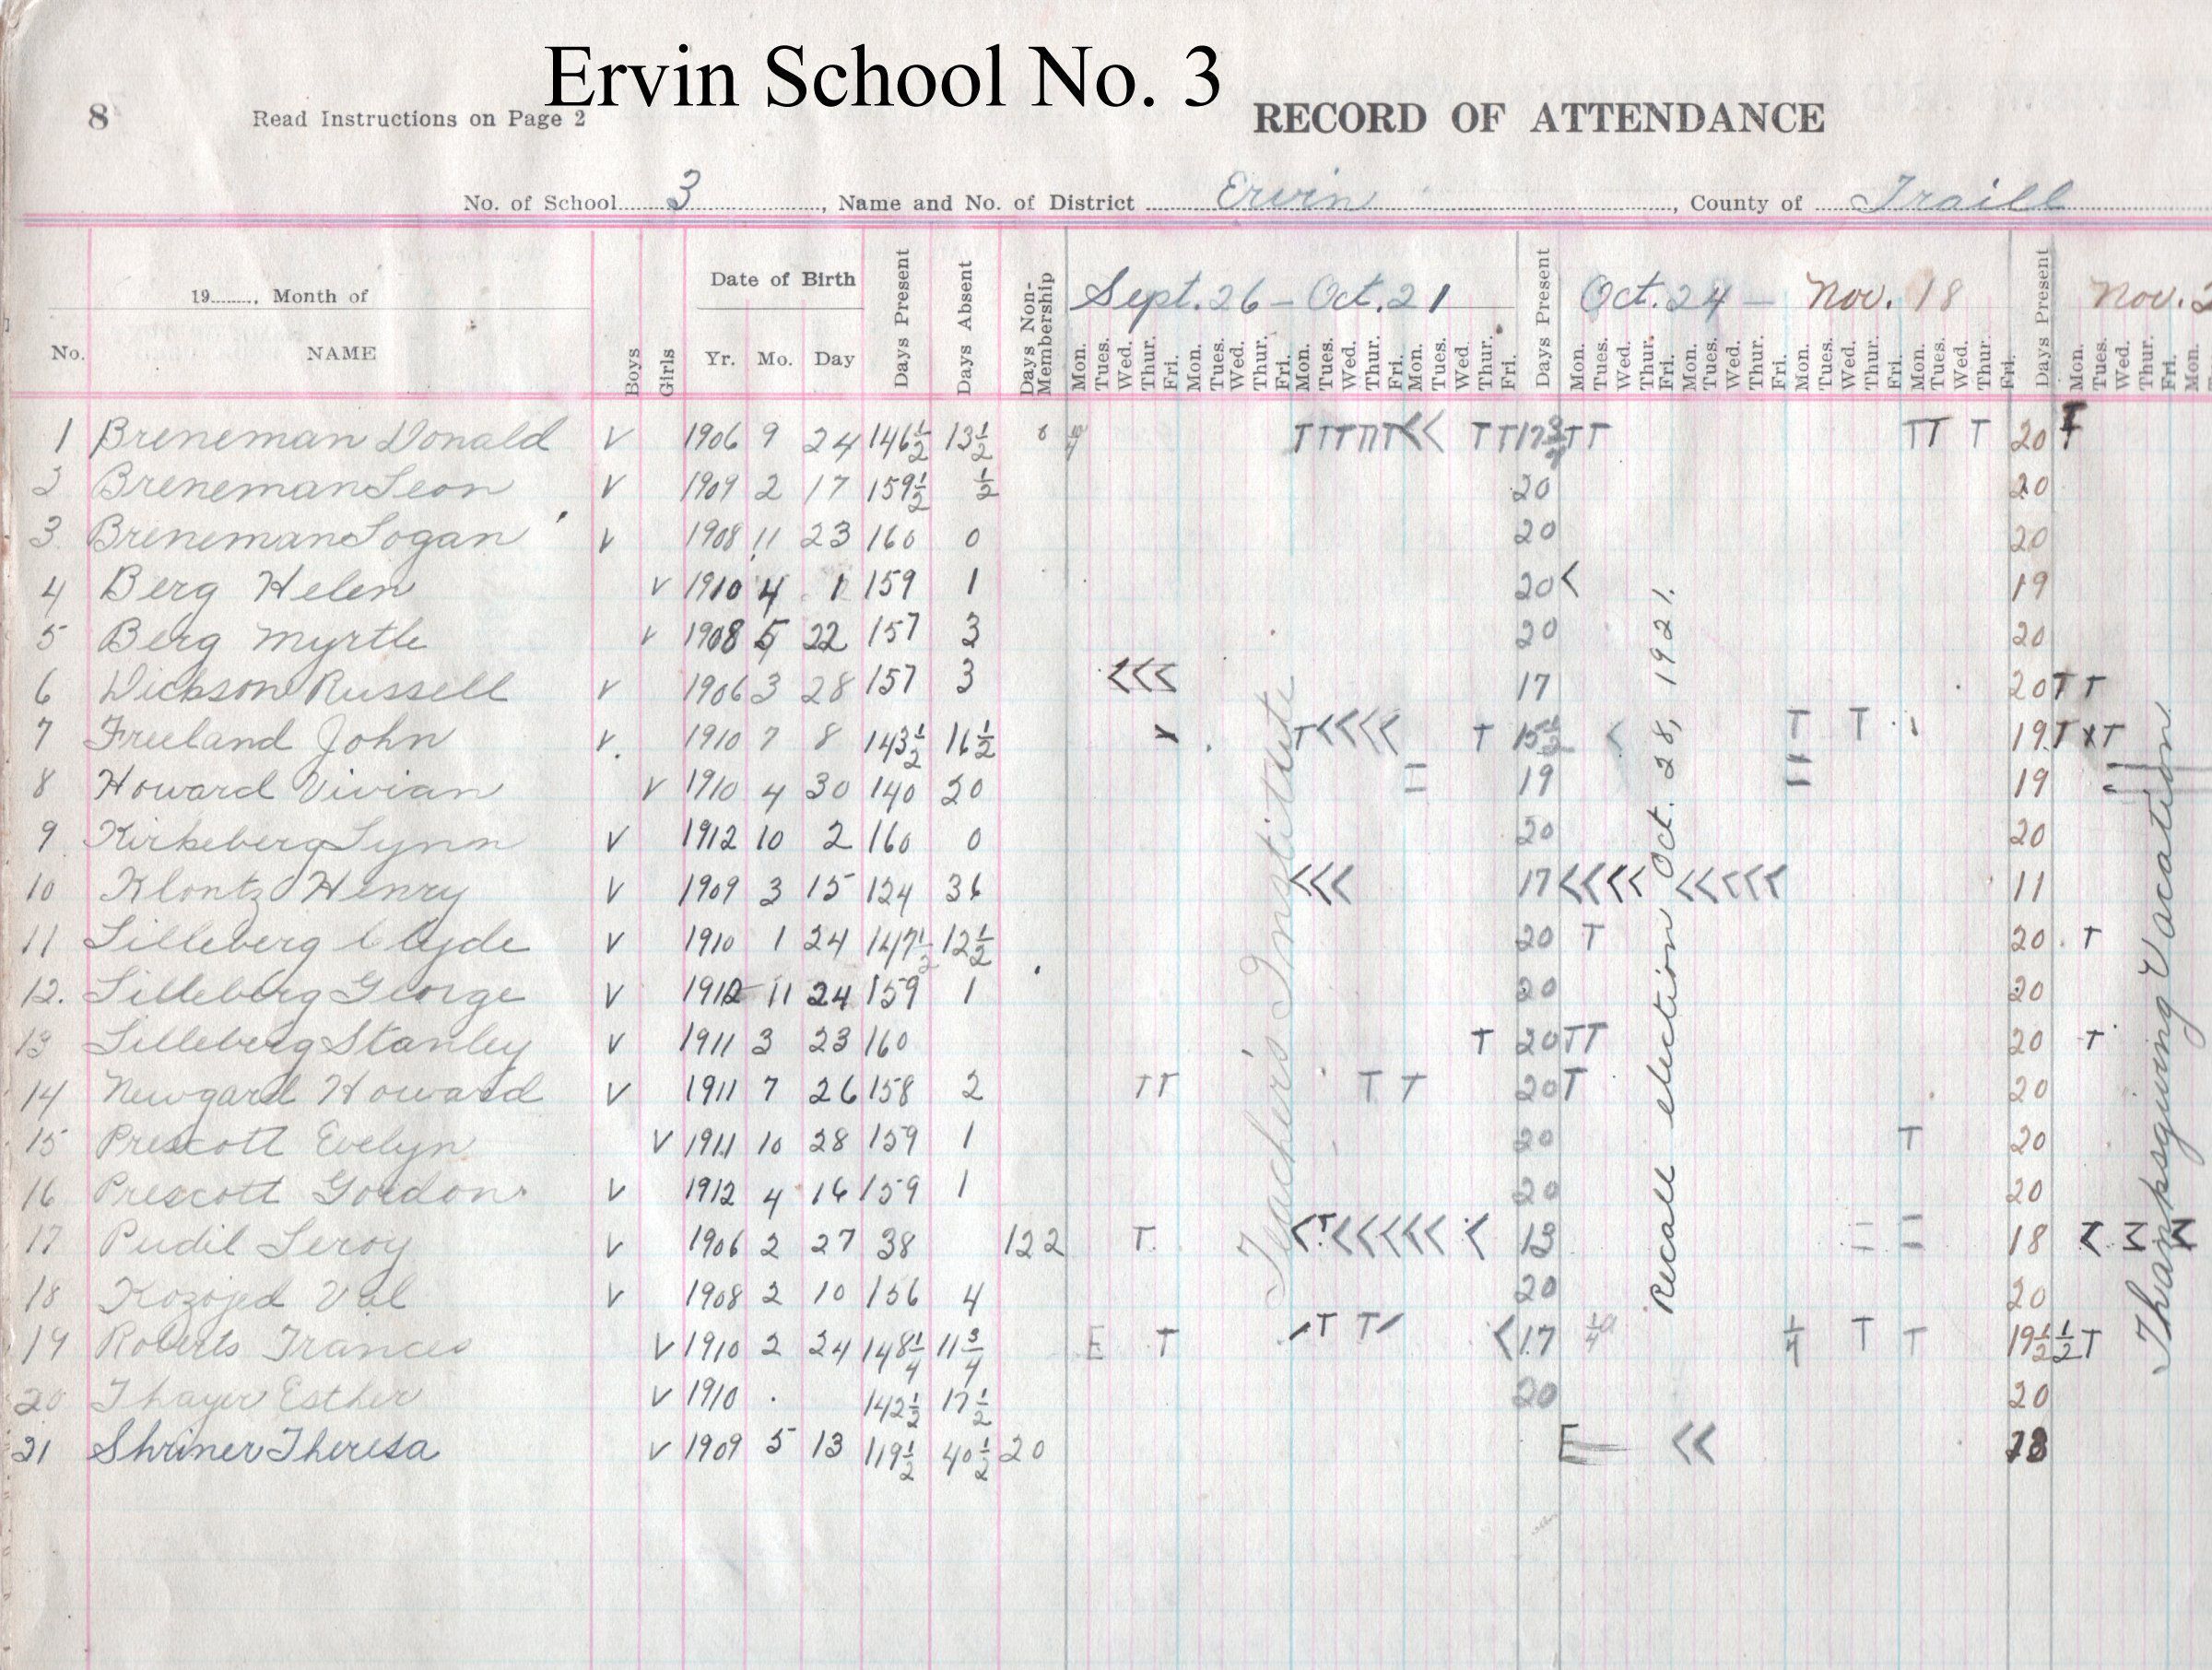 Ervin School No. 3
8 Read Instructions on Page 2 RECORD OF ATTENDANCE
No. of School 3, Name and No. of District Ervin, County of Traill
19...., Month of
No. NAME Boys Girls Date of Birth Yr. Mo. Day Days Present Days Absent Days Non-Membership
Sept. 26 - Oct. 21 Days Present Oct. 24 - Nov. 18 Days Present Nov. 2
Mon. Tues. Wed. Thur. Fri. Mon. Tues. Wed. Thur. Fri. Mon. Tues. Wed. Thur. Fri. Mon. Tues. Wed. Thur. Fri. Mon. Tues. Wed. Thur. Fri. Mon. Tues. Wed. Thur. Fri. Mon. Tues. Wed. Thur. Fri. Mon. Tues. Wed. Thur. Fri. Mon. Tues. Wed. Thur. Fri. Mon.
1 Breneman Donald V 1906 9 24 146 1/2 13 1/2 T T T T T T T T 17 3/4 T T T T T 20 T
2 Breneman Leon V 1909 2 17 159 1/2 1/2 20 20
3. Breneman Logan V 1908 11 23 160 0 20 20
4 Berg Helen V 1910 4 1 159 1 20 < 19
5 Berg Myrtle V 1908 5 22 157 3 20 20
6 Dickson Russell V 1906 3 28 157 3 <<< 17 20 T T
7 Freeland John V 1910 7 8 143 1/2 16 1/2 T <<<< T 15 1/2 < T T 19 T X T
8 Howard Vivian V 1910 4 30 140 20 19 19
9 Kirkeberg Lynn V 1912 10 2 160 0 20 20
10 Klontz Henry V 1909 3 15 124 36 <<< 17 <<<< <<<<< 11
11 Lilleberg Clyde V 1910 1 24 147 1/2 12 1/2 20 T 20 T
12. Lilleberg George V 1912 11 24 159 1 20 20
13 Lilleberg Stanley V 1911 3 23 160 T 20 T T 20 T
14 Newgard Howard V 1911 7 26 158 2 T T T T 20 T 20
15 Prescott Evelyn V 1911 10 28 159 1 20 T 20
16 Prescott Gordon V 1912 4 16 159 1 20 20
17 Pudil Leroy V 1906 2 27 38 122 T < T <<<<<< < 13 18
18 Kozojed Val V 1908 2 10 156 4 20 20
19 Roberts Frances V 1910 2 24 148 1/4 11 3/4 E T T T < 17 1/4 a 1/4 T T 19 1/2 1/2 T
20 Thayer Esther V 1910 142 1/2 17 1/2 20 20
21 Shriner Theresa V 1909 5 13 119 1/2 40 1/2 20 E << 18
Teacher's Institute
Recall election Oct. 28, 1921.
Thanksgiving Vacation